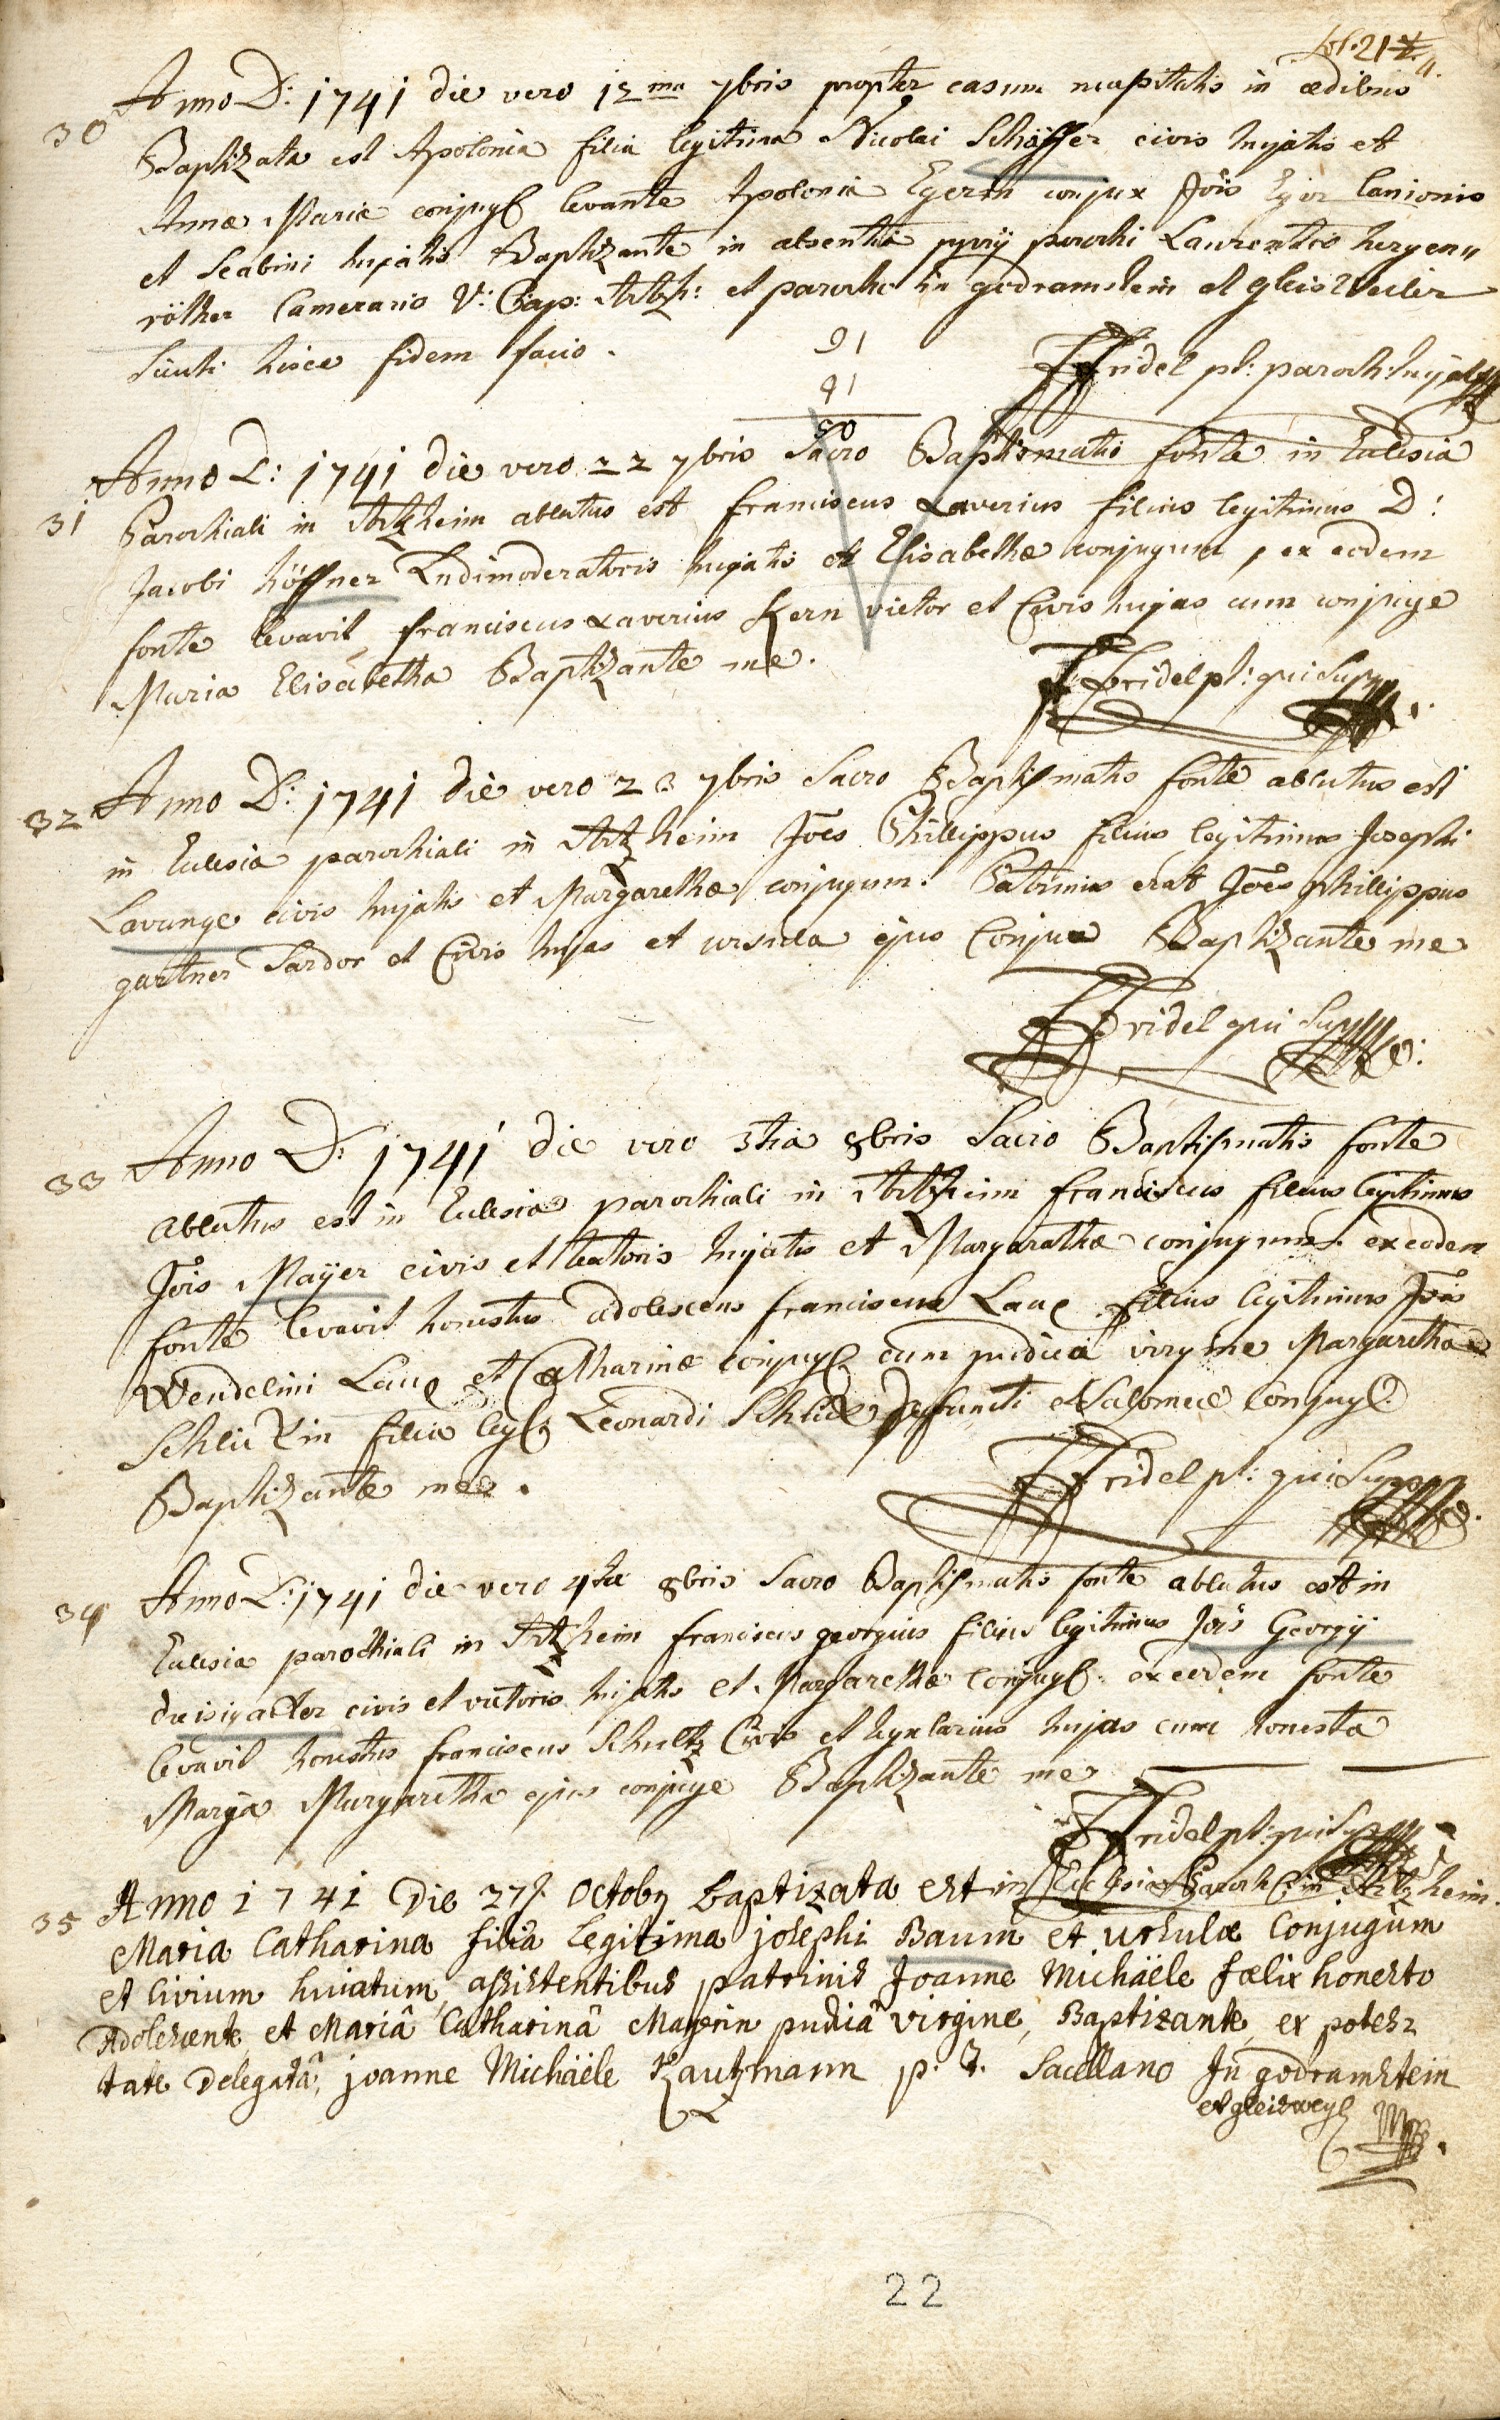 fol. 21
Anno D: 1741 die vero 12ma 7bris propter casum necessitatis in ædibus
30
Baptizata est Apolonia filia legitima Nicolai Schäffer civis hujatis et
Annæ Mariæ conjug levante Apolonia Egerin conjux Jõis Eger lanionis
et Scabini hujatis Baptizante in absentia parochi Laurentio hergen„
röther Camerario V: Cap: Artzh: et parocho in godramstein et gleisweiler
Sicuti hisce fidem facio.
91
41
50
FFridel pt: paroch: hujas
Anno D: 1741 die vero 22 7bris Sacro Baptismatis fonte in Eulesia
31
Parochiali in Artzheim ablutus est franciscus Xaverius filius legitimus D:
Jacobi höffner Ludimoderatoris hujatis et Elisabethæ conjugum, ex eodem
fonte levavit franciscus Xaverius Kern vietor et Civis hujas cum conjuge
Maria Elisabetha Baptizante me.
FFridel pt: qui Supra
Anno D: 1741 die vero 23 7bris Sacro Baptismatis fonte ablutus est
32
in Eulesia parochiali in Artzheim Jões Phillippus filius legitimus Josephi
Lavange civis hujatis et Margarethæ conjugum. Patrinus erat Jões phillippus
gartner Sardor et Civis hujas et ursula ejus Conjux Baptizante me
FFridel qui Supra
Anno D: 1741 die vero 3tia 8bris Sacro Baptismatis fonte
33
ablutus est in Eulesia parochiali in Artzheim franciscus filius legitimus
Jõis Maÿer civis et textoris hujatis et Margarathæ conjugum. ex eodem
fonte levavit honestus adolescens franciscus Laux filius legitimus Jõis
Wendelini Laux et Catharinæ conjug cum pudica virgine Margaretha
Schlickin filia leg Leonardi Schlick defuncti et Salomeæ Conjug.
Baptizante me.
FFridel pt: qui Supra
Anno D: 1741 die vero 4ta 8bris Sacro Baptismatis fonte ablutus est in
34
Eulesia parochiali in Artzheim franciscus georgius filius legitimus Jõis Georgÿ
dreisigacker civis et vietoris hujatis et Margarethæ Conjug. ex eodem fonte
levavit honestus franciscus Schultz Civis et hujas cum honesta
Maria Margaretha ejus conjuge Baptizante me
FFridel pt: qui Supra
Anno 1741 Die 27. Octob baptizata est in Ecclesia Paroch in Artzheim.
35
Maria Catharina filia legitima josephi Baum et ursulæ Conjugum
et Civium huiatum, assistentibus patrinis Joanne Michäele fœlix honesto
Adolescente, et Mariâ Catharinâ Mayerin pudicâ virgine, Baptizante, ex potes=
tate Delegatâ, joanne Michäele Kautzmann p. t. Sacellano In godramstein
et gleisweyl
22